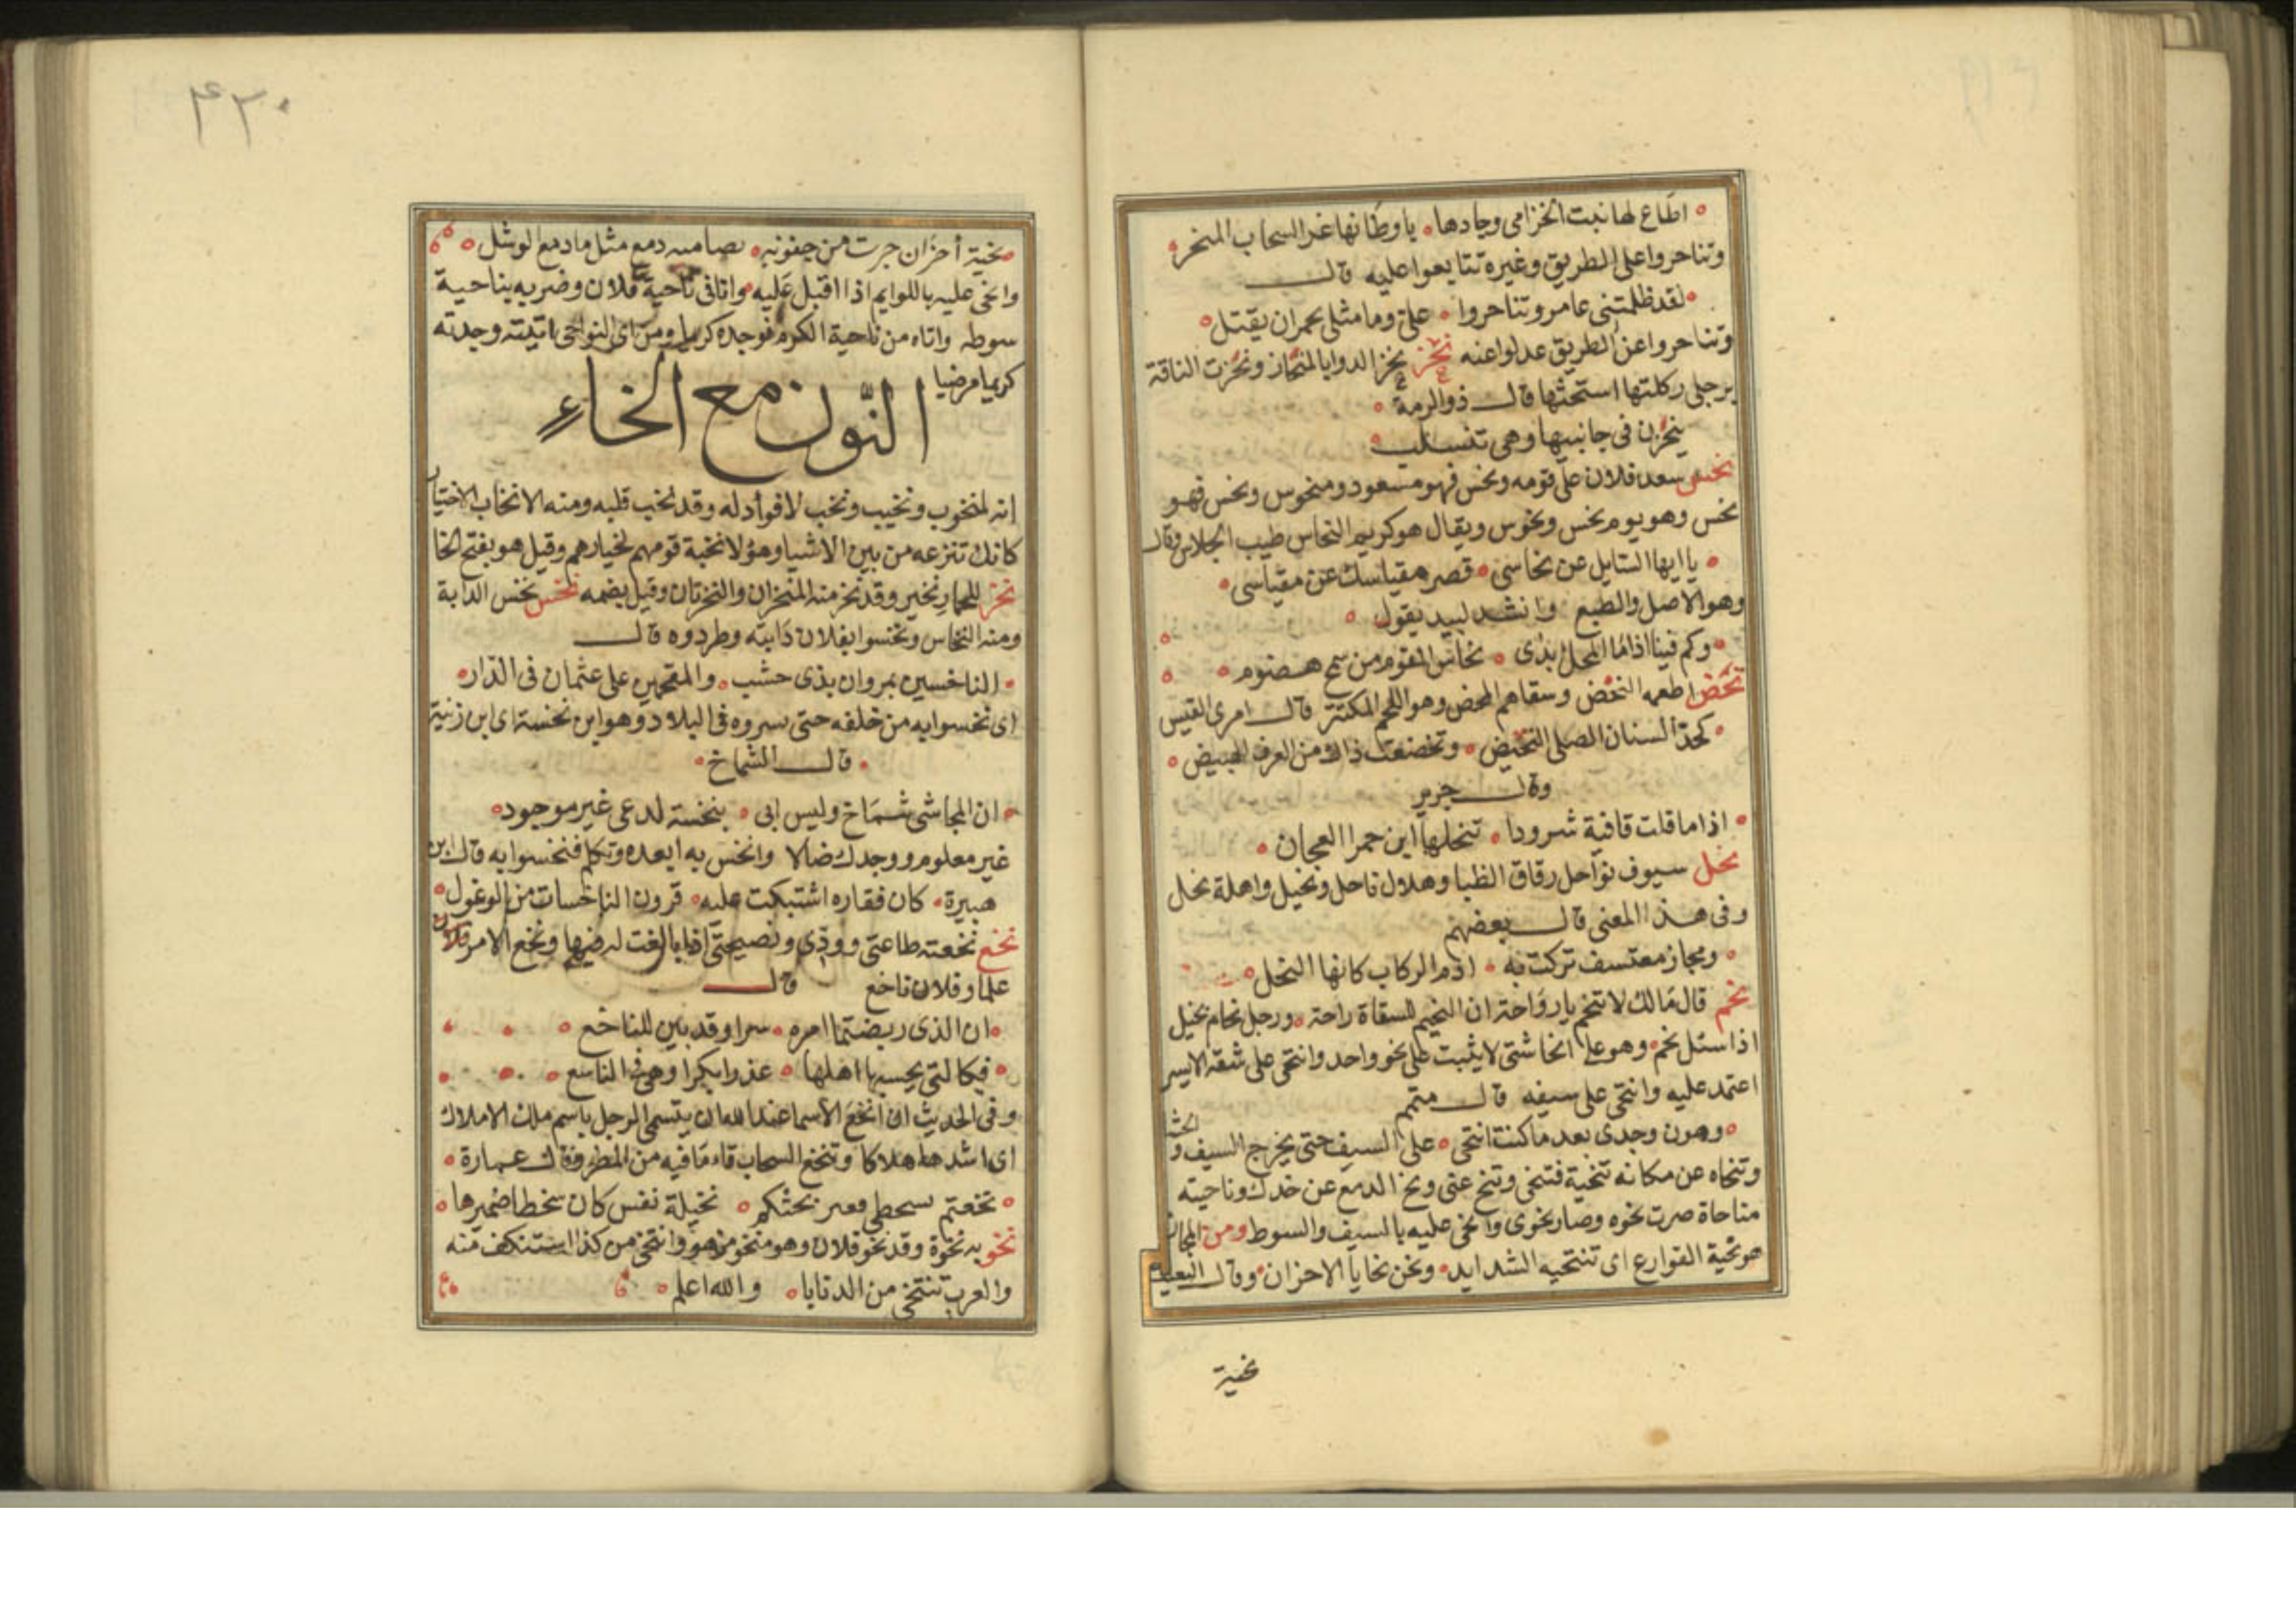 اطاع لها نبت الخزامى وجادها ٥ باوطانها غر السحاب المنحر
وتناحروا على الطريق وغيره تتايعوا عليه قال
٥ لقد ظلمتنى عامر وتناحروا ٥ على وما مثلى بحمران يقتل ٥
وتناحروا عن الطريق عدلوا عنه نحز نحز الدوا بالمنحاز ونحزت الناقة
برجلى ركلتها استحثها قال ذو الرمة ٥
ينحزن فى جانبيها وهى تنسلب ٥
نحس سعد فلان على قومه ونحس فهو مسعود ومنحوس ونحس فهو
نحس وهو يوم نحس ونحوس ويقال هو كريم النحاس طيب الجلاس وقال
٥ يا ايها السايل عن نحاسى ٥ قصر مقياسك عن مقياسى ٥
وهو الاصل والطبع وانشد لبيد يقول ٥
٥ وكم فينا اذا ما المحل ابدى ٥ نحاس القوم من سمح هضوم ٥
نحض اطعمه النحض وسقاهم المحض وهو اللحم المكتنز قال امرى القيس
٥ كحد السنان الصلى النحيض ٥
وقال جرير
٥ اذا ما قلت قافية شرودا ٥ تنحلها ابن حمرا العجان ٥
نحل سيوف نواحل رقاق الظبا وهلال ناحل ونحيل واهلة نحل
وفى هذا المعنى قال بعضهم
٥ ومجاز معتسف تركت به ٥ ادم الركاب كانها النحل ٥
نحم قال مالك لا تنحم يا رواحة ان النحيم للسقاة راحة ٥ ورجل نحام بخيل
اذا سئل نحم ٥ وهو على انحا شتى لا يثبت على نحو واحد وانتحى على شقه الايسر
اعتمد عليه وانتحى على سيفه قال متمم
٥ وهون وجدى بعد ما كنت انتحى ٥ على السيف حتى يخرج السيف و الحشا
وتنحاه عن مكانه تنحية فتنحى وتنح عنى ونح الدمع عن خدك وناحيته
مناحاة صرت نحوه وصار نحوى وانحى عليه بالسيف والسوط ومن المجاز
هو نحية القوارع اى تنتحيه الشدايد ٥ ونحن نحايا الاحزان ٥ وقال البعيث
نحية
٤٢٠
٥ نحية أحزان جرت من جفونه ٥ دمع مثل ما دمع الوشل ٥
وانحى عليه باللوايم اذا اقبل عليه واتانى ناحية فلان وضربه بناحية
سوطه واتاه من ناحية الكرم فوجده كريما ومن اى النواحى اتيته وجدته
كريما مرضيا
النون مع الخاء
انه لمنخوب ونخيب ونخب لا فوأد له وقد نخب قلبه ومنه الانتخاب الاختيار
كانك تنزعه من بين الاشيا وهؤلا نخبة قومهم لخيارهم وقيل هو بفتح الخا
نخر للحمار نخير وقد نخر منه المنخران والنخرتان وقيل بضمه نخس نخس الدابة
ومنه النخاس ونخسوا بفلان دابته وطردوه قال
٥ الناخسين بمروان بذى خشب ٥ والمقحمين على عثمان فى الدار ٥
اى نخسوا به من خلفه حتى سروه فى البلاد وهو ابن نخسة اى ابن زنية
٥ قال الشماخ ٥
٥ ان المجاشى شماخ وليس ابى ٥ بنخسة لدعى غير موجود ٥
غير معلوم ووجدك ضالا وانخس به ابعده وتكلم فنخسوا به قال ابن
هبيرة ٥ كان فقاره اشتبكت عليه ٥ قرون الناخسات من الوعول ٥
نخع نخعته طاعتى وودى ونصيحتى اذا بالغت له فيها ونخع الامر فلان
علما وفلان ناخع قال
٥ ان الذى ربضتما امره ٥ سرا وقد بين للناخع ٥
٥ فبكالتى يحسبها اهلها ٥ عذرا بكرا وهى فى التاسع ٥
وفى الحديث ان انخع الاسما عند الله ان يتسمى الرجل باسم ملك الاملاك
اى اشدها هلاكا وتنخع السحاب قاء ما فيه من المطر وقال عمارة ٥
٥ نخيلة نفس كان سخطا ضميرها ٥
نخو به نخوة وقد نخو فلان وهو منخو مزهو وانتخى من كذا استنكف منه
والعرب تنتخى من الدنايا ٥ والله اعلم ٥